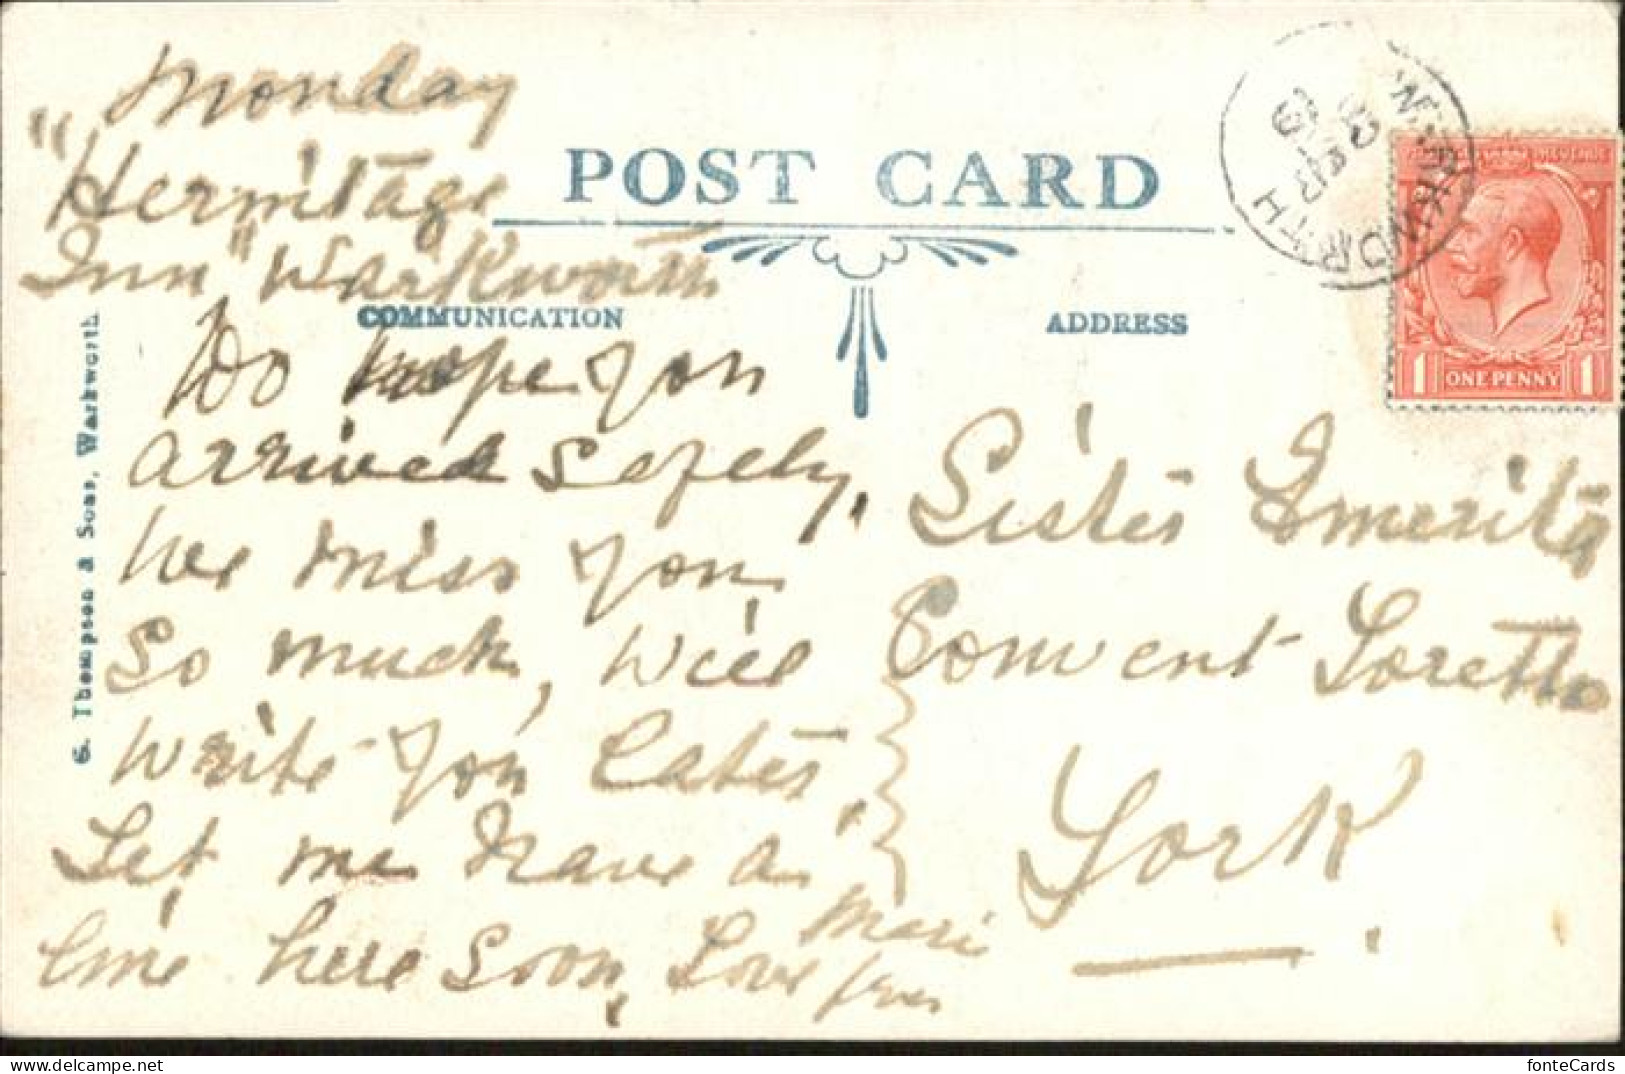 Monday
"Hermitage
Inn" Warkworth
POST CARD
COMMUNICATION
ADDRESS
Do hope you
arrived safely,
we miss you
so much, will
write you later,
Let me have a
line here soon, Love from
Marie
Sister Emerita
Convent Loretto
York.
G. Thompson & Sons, Warkworth
WARKWORTH
ONE PENNY
1
1
fonteCards